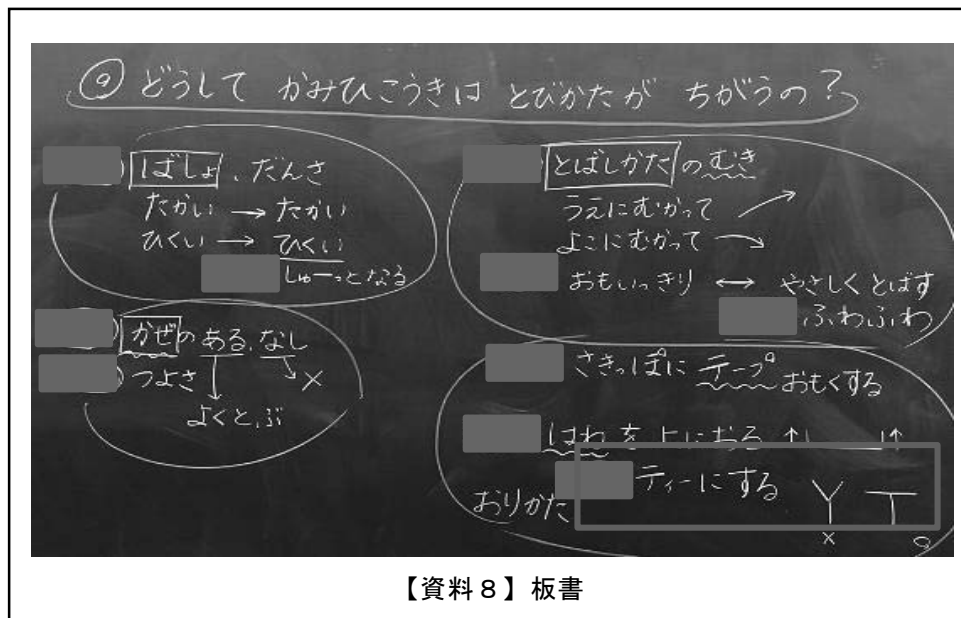 ⑨ どうして かみひこうきは とびかたが ちがうの?
ばしょ、だんさ
たかい → たかい
ひくい → ひくい
しゅーっとなる
かぜの ある、なし
つよさ ↓ ↘ ×
よくとぶ
とばしかた の むき
うえにむかって ↗
よこにむかって ↘
おもいっきり ↔ やさしく とばす
ふわふわ
さきっぽに テープ おもくする
はねを上におる ↑ ↑
おりかた ティーにする Y T
× ○
【資料8】板書